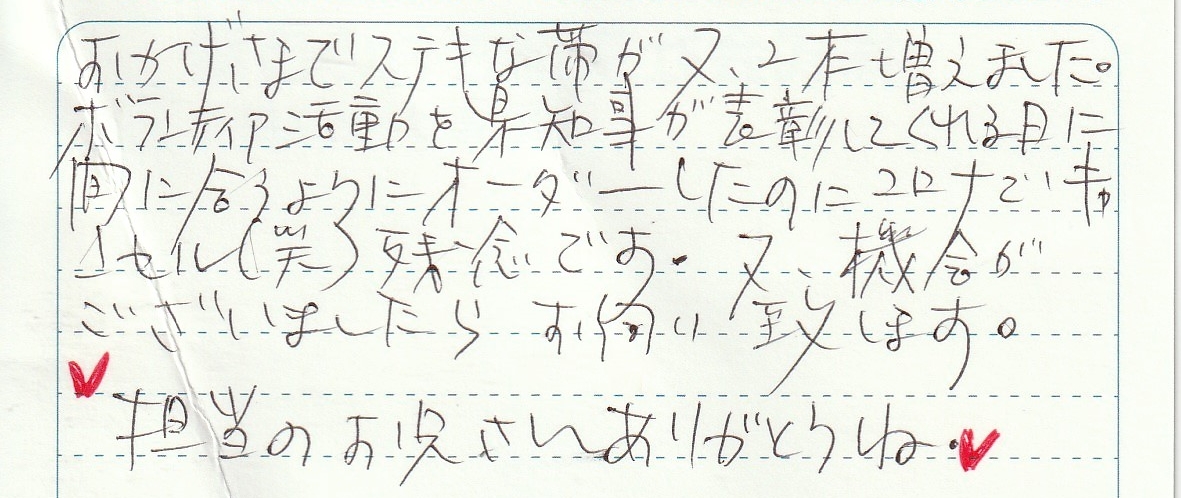 おかげさまでステキな帯が又、2本増えました。
ボランティア活動を県知事が表彰してくれる日に
間に合うようにオーダーしたのにコロナでキャ
ンセル(笑)残念です。又、機会が
ございましたらお伺い致します。
担当のお兄さんありがとうね。